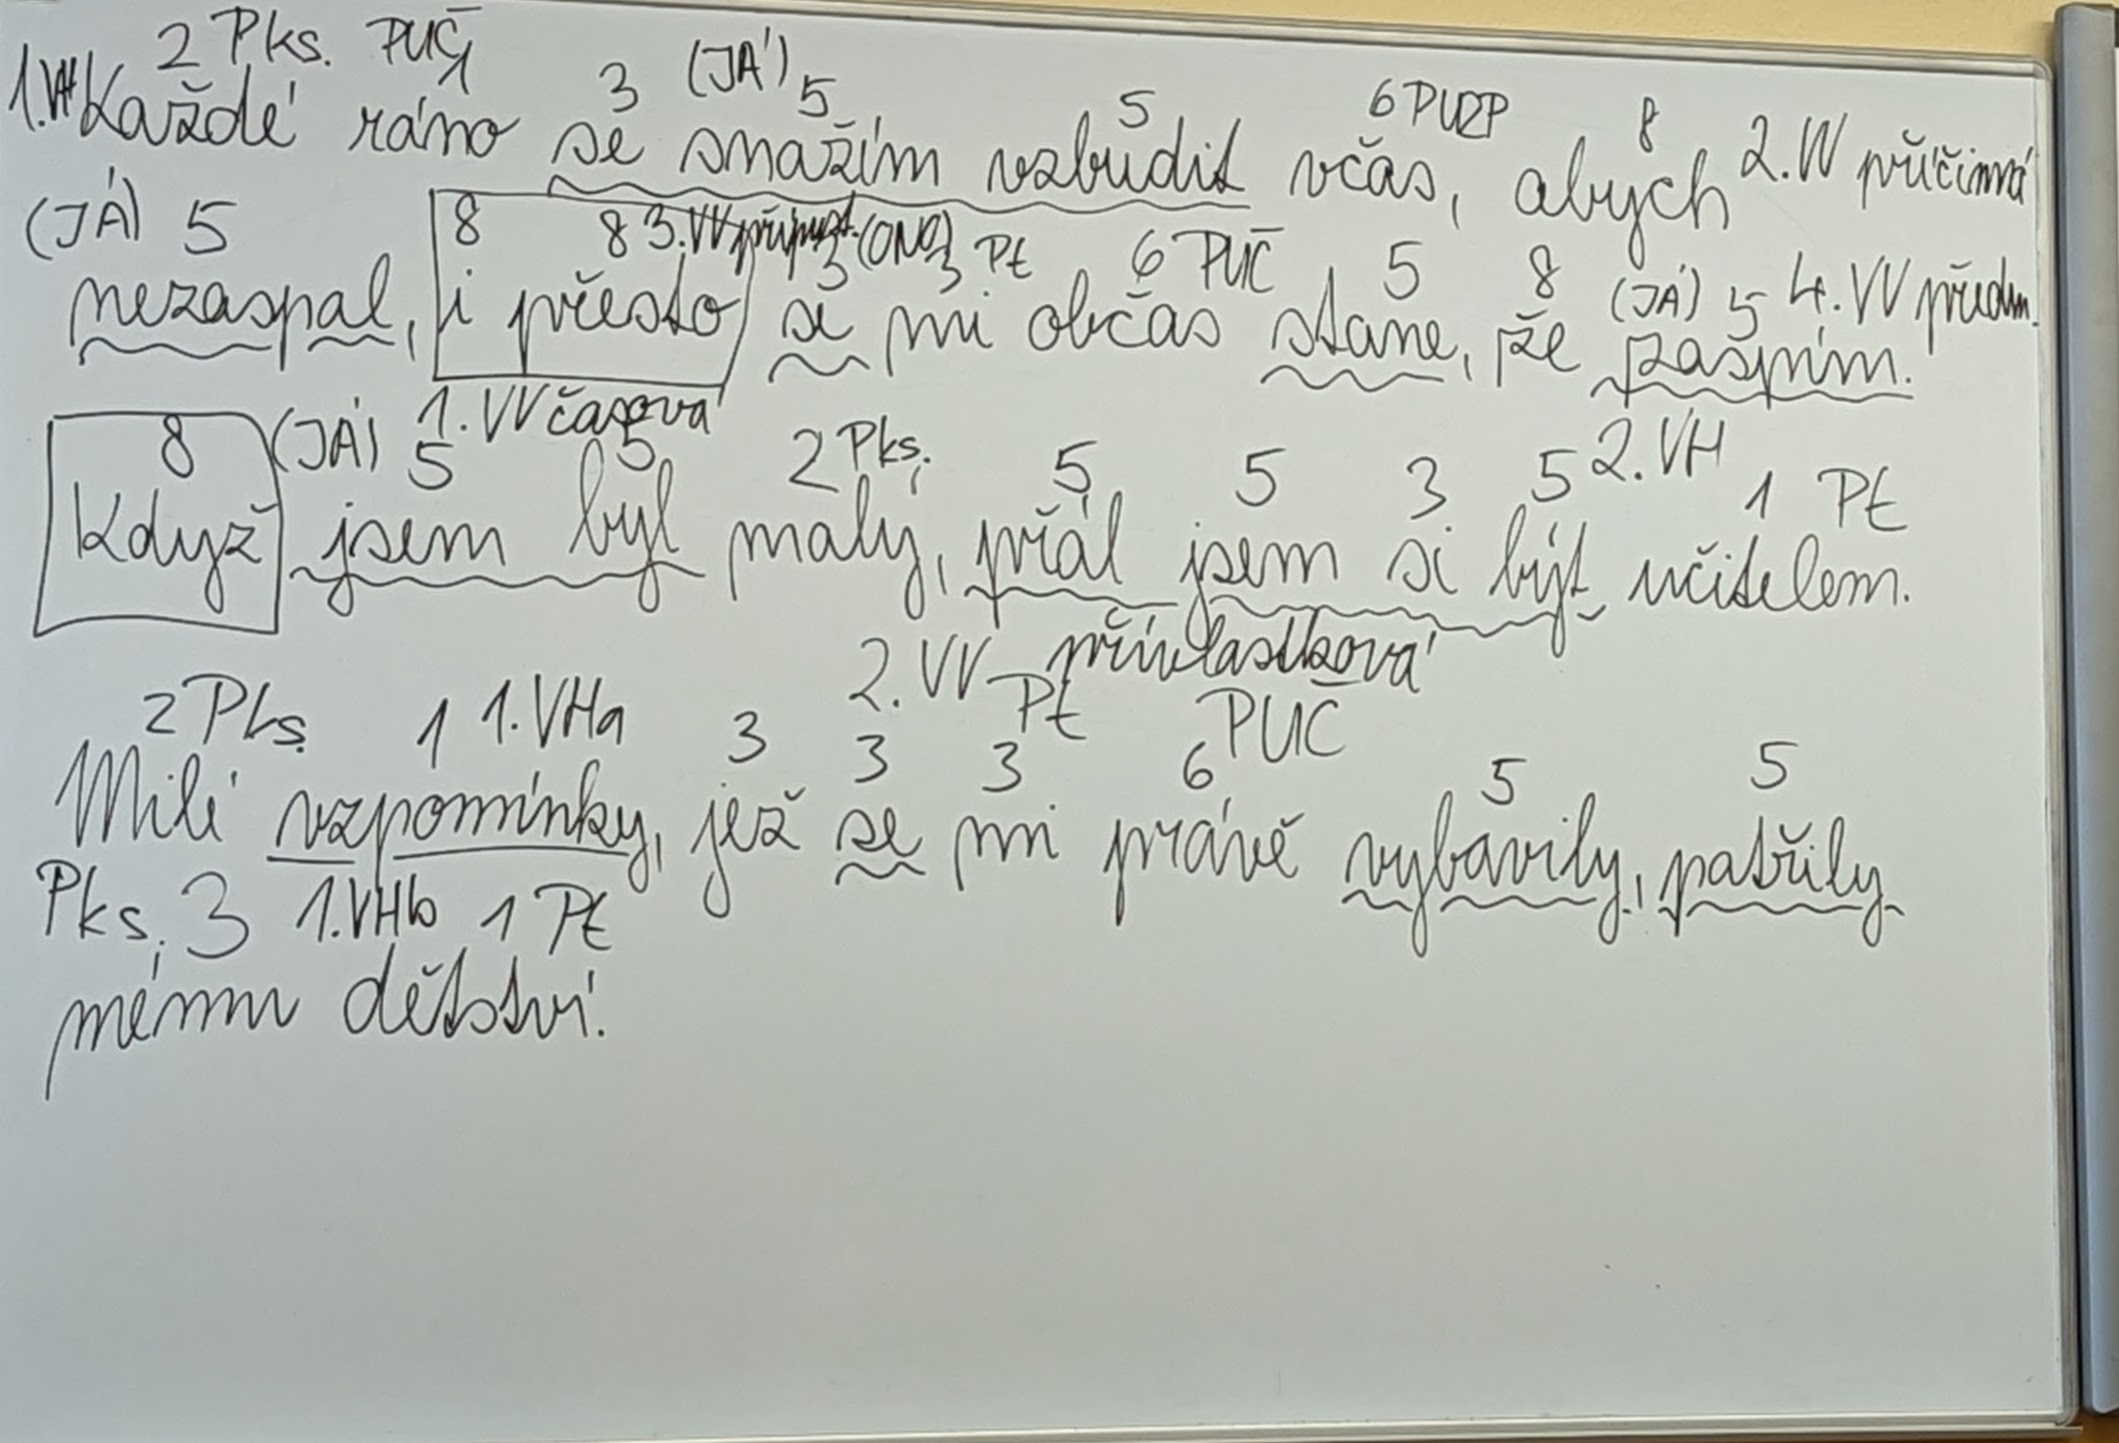 2 Pks. PUČ
1
1.VH Každé ráno se snažím vzbudit včas, abych 2.VV příčinná
3 (JÁ) 5 5 6 PUZP 8
(JÁ) 5 8 8 3.VV přípust. 3 (ONO) 3 Pt 6 PUČ 5 8 (JÁ) 5 4. VV předm.
nezaspal, i přesto si mi občas stane, že zaspím.
8 (JÁ) 5 1. VV časová 5 2 Pks. 5 5 3 5 2. VH 1 Pt
Když jsem byl malý, přál jsem si být učitelem.
2 Pks. 1 1. VHa 3 2. VV přívlastková 3 Pt 3 6 PUČ 5 5
Milé vzpomínky, jež se mi právě vybavily, patřily
Pks. 3 1.VHb 1 Pt
mému dětství.